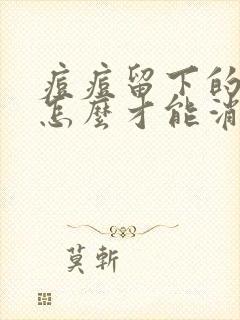 痘痘留下的
怎麼才能消
莫斬